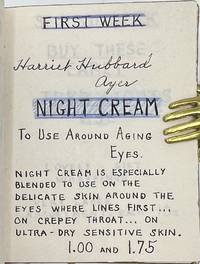 FIRST WEEK
Harriet Hubbard
Ayer
NIGHT CREAM
To Use Around Aging
Eyes.
NIGHT CREAM IS ESPECIALLY
BLENDED TO USE ON THE
DELICATE SKIN AROUND THE
EYES WHERE LINES FIRST...
ON CREPEY THROAT... ON
ULTRA-DRY SENSITIVE SKIN.
1.00 AND 1.75